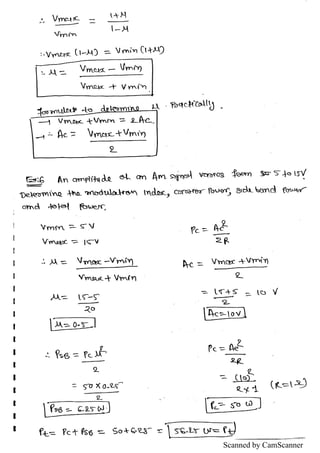 ∴ Vmax / Vmin = 1+M / 1-M
∴ Vmax (1-M) = Vmin (1+M)
∴ M = Vmax - Vmin / Vmax + Vmin
formulas to determine M Practically.
→ Vmax + Vmin = 2Ac
→ ∴ Ac = Vmax + Vmin / 2
Ex:6 An amplitude of an Am signal varies form 5 to 15V
Determine the modulation Index, carrier Power, side band Power
and total Power.
Vmin = 5V
Vmax = 15V
Pc = Ac² / 2R
∴ M = Vmax - Vmin / Vmax + Vmin
Ac = Vmax + Vmin / 2
M = 15-5 / 20
= 15+5 / 2 = 10 V
M = 0.5
Ac = 10V
∴ PSB = Pc M² / 2
Pc = Ac² / 2R
= 50 x 0.25 / 2
= (10)² / 2x1 (R=1Ω)
PSB = 6.25W
Pc = 50 W
Pt = Pc + PSB = 50+6.25 = 56.25 W = Pt
Scanned by CamScanner